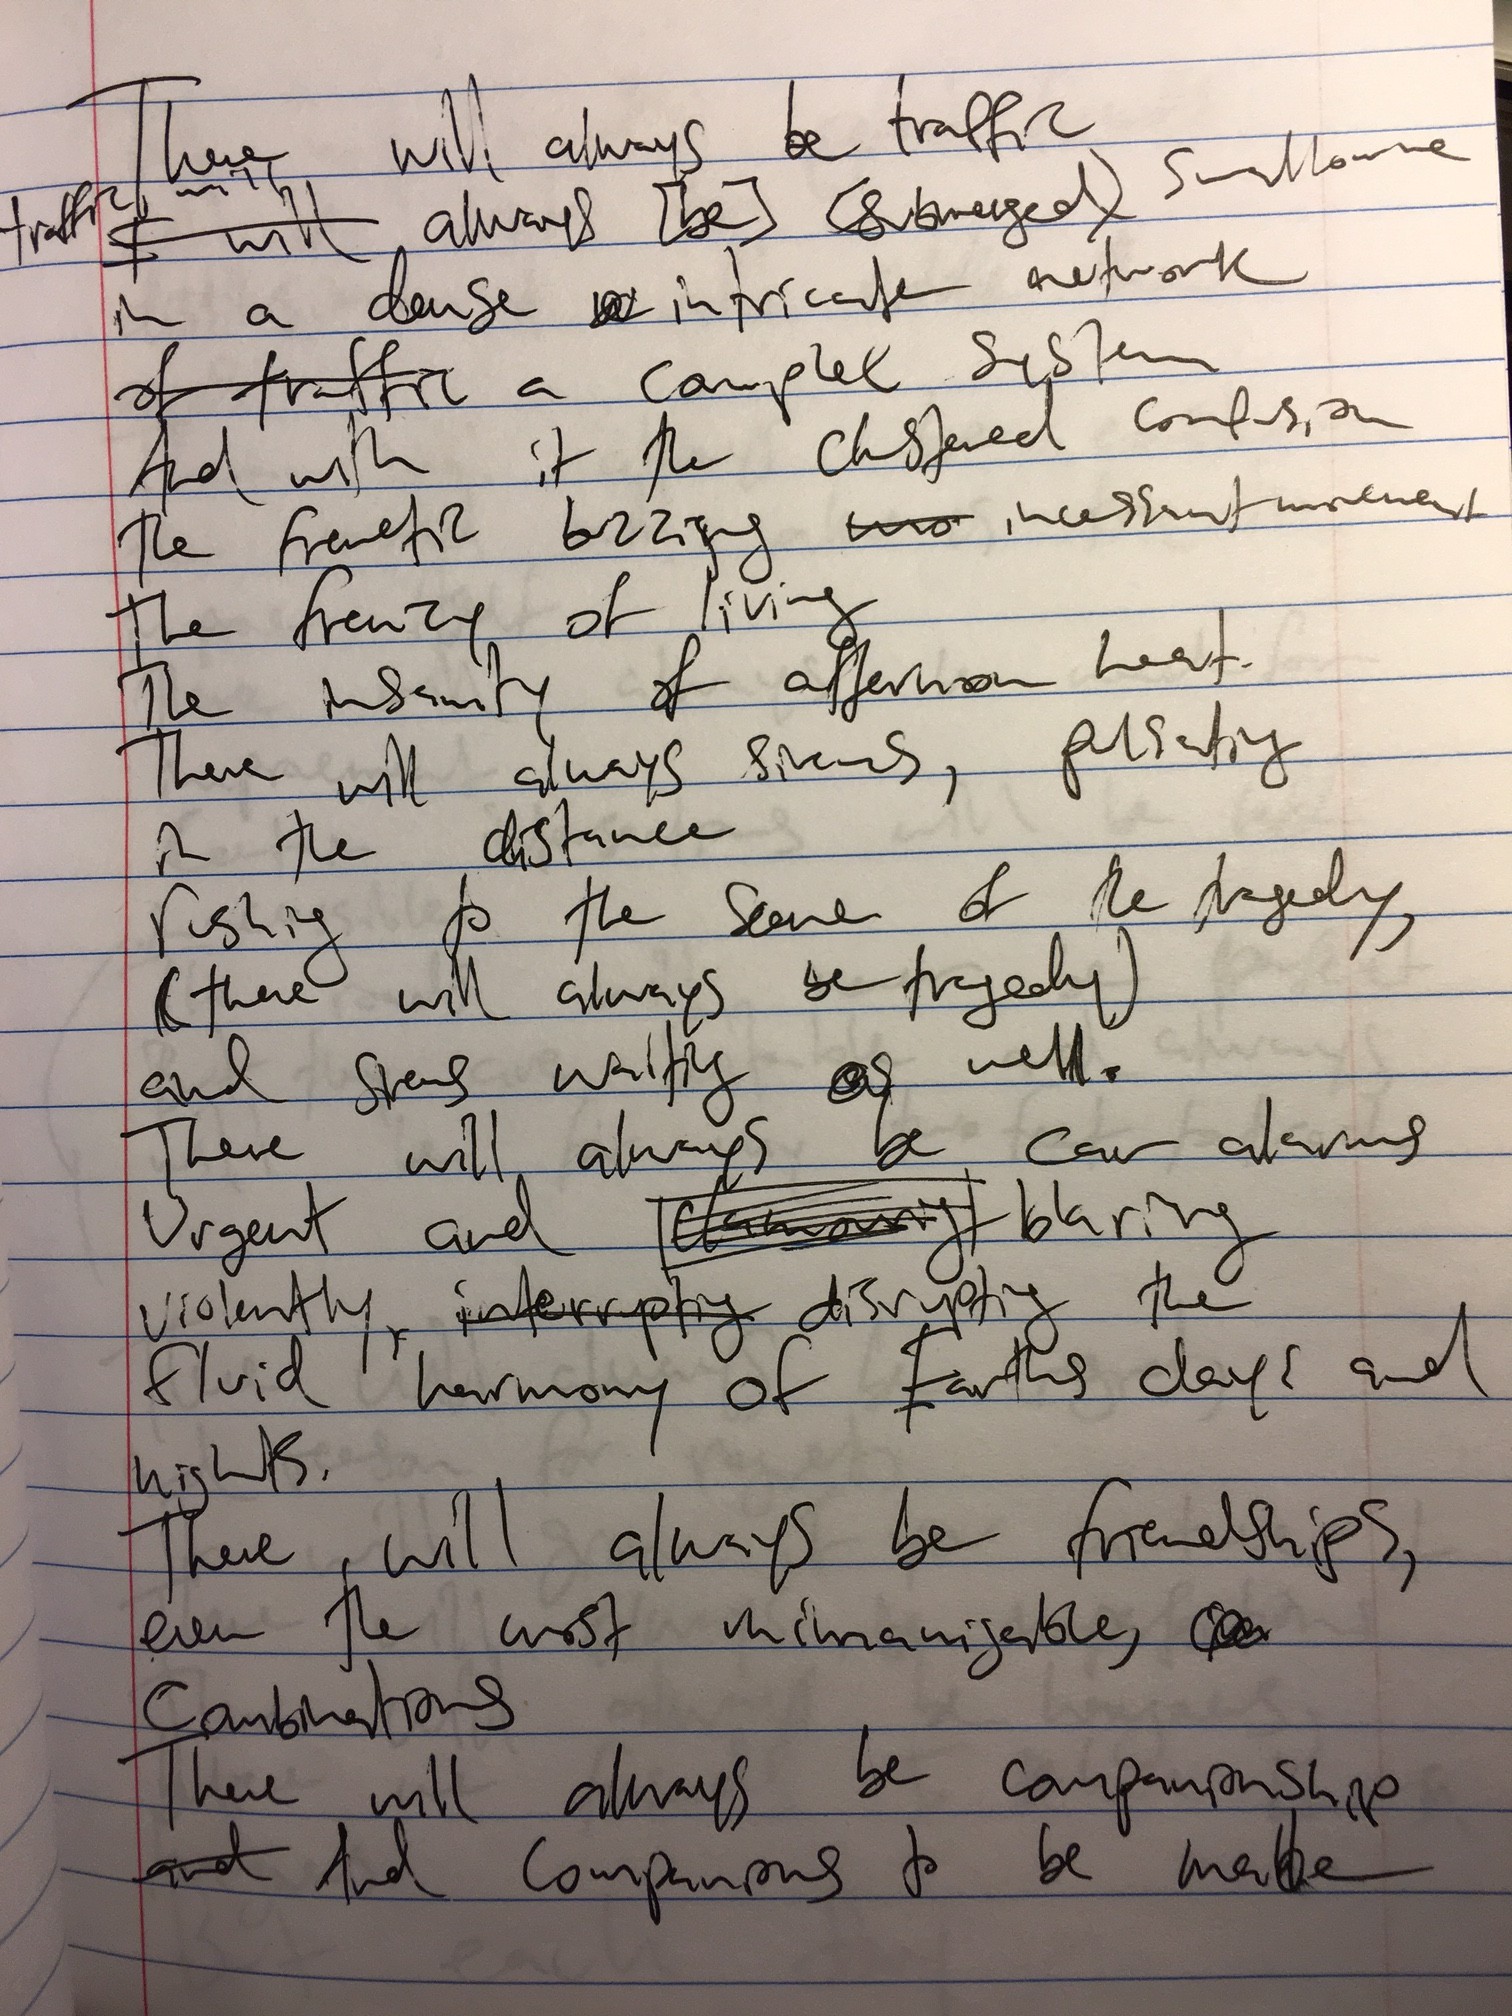 There will always be traffic
traffic will I will always [be] (submerged) swallow me
in a dense intricate network
of traffic a complex system
And with it the clustered confusion
the frenetic buzzing incessant movement
the frenzy of living
The insanity of afternoon heat.
There will always sirens, pulsating
in the distance
rushing to the scene of the tragedy,
(there will always be tragedy)
and sirens waiting as well.
There will always be car alarms
Urgent and [clamoring] blaring
violently, interrupting disrupting the
fluid harmony of Earths days and
nights.
There will always be friendships,
even the most unimaginable,
Combinations
There will always be companionship
and And companions to be